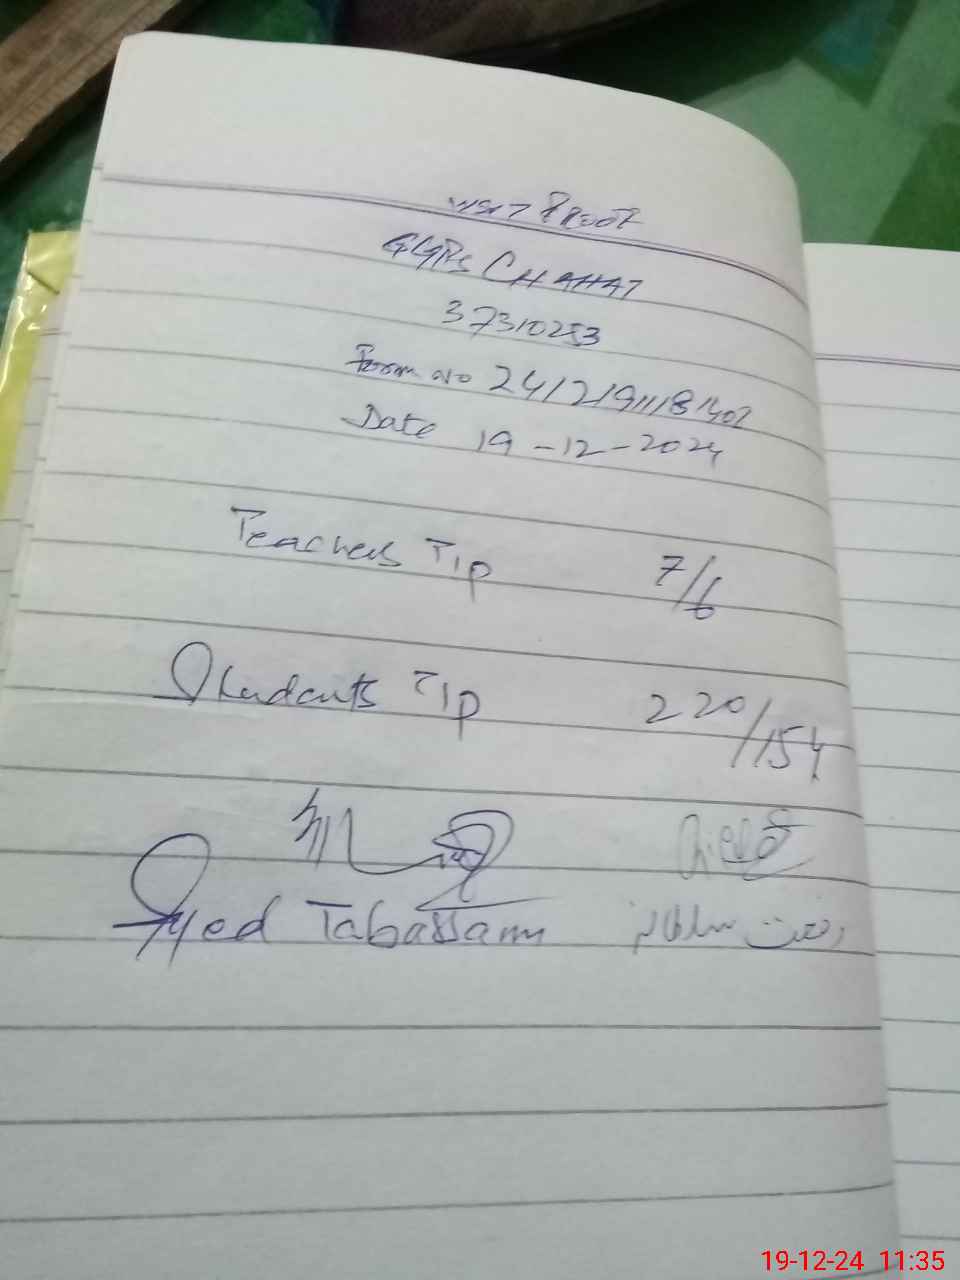 Visit Proof
GGPS CHAHAT
37310253
Form No 24121911181402
Date 19-12-2024
Teachers Tip 7/6
Students Tip 220/154
Syed Tabassam
19-12-24 11:35